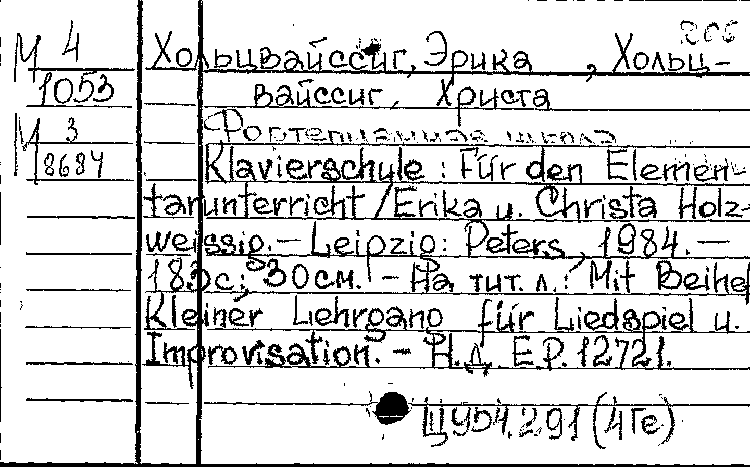 М 4
1053
М 3
18684
205
Хольцвайссиг, Эрика , Хольц-
вайссиг, Христа
Фортепианная школа
Klavierschule : Für den Elemen-
tarunterricht / Erika u. Christa Holz-
weissig. – Leipzig: Peters, 1984. –
183с.; 30см. – На тит. л.: Mit Beihef
Kleiner Lehrgang für Liedspiel u.
Improvisation. – Н.д. E.P. 12721.
Щ954.291 (4Ге)